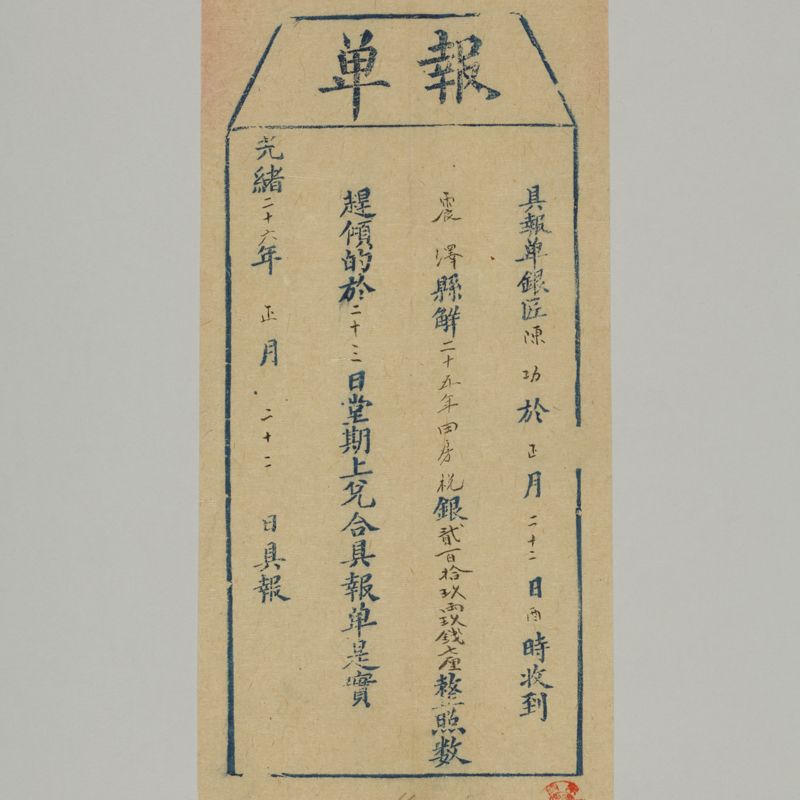 報单
具報单銀匠陳功於正月二十二日酉時收到
震澤縣解二十五年田房税銀貳百拾玖両玖錢七厘整照数
趕傾的於二十三日堂期上兌合具報单是實
光緒二十六年正月二十二日具報